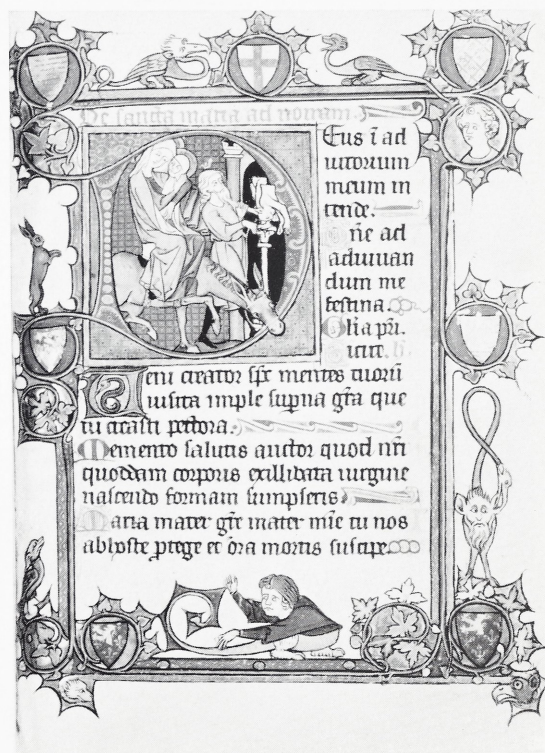 De sancta maria ad nonam.
Deus ī ad
iutorium
meum in
tende.
Dñe ad
adiuuan
dum me
festina.
Glia pri.
Sicut.
Veni creator spc mentes tuorū
uisita imple supna gr̄a que
tu creasti pectora.
Memento salutis auctor quod nr̄i
quoddam corporis exillibata uirgine
nascendo formam sumpseris
Maria mater gr̄e mater mīe tu nos
ab hoste ptege et ora mortis suscipe.